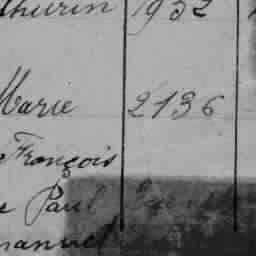 thurin 1932
Marie 2136
François
e Paul
manuel